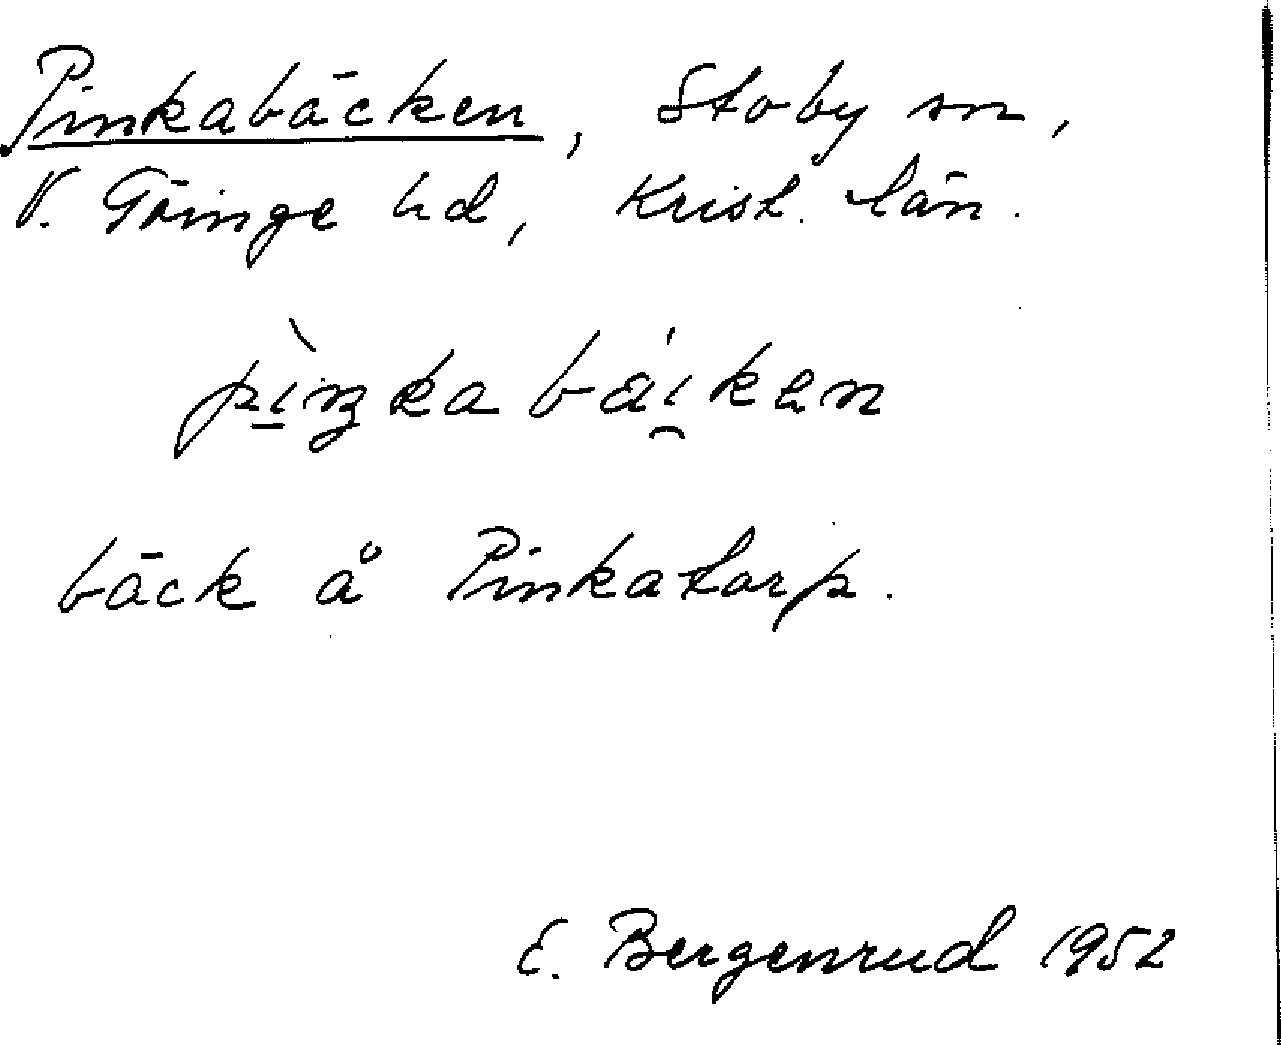 Pinkabäcken, Stoby sn,
V. Göinge hd, Krist. län.
pìŋkabái̯kən
bäck å Pinkatorp.
E. Bergenrud 1952